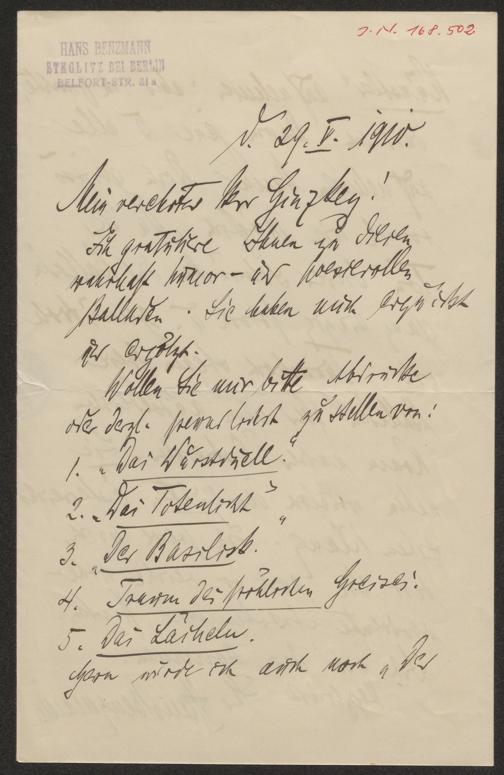 J.N. 168.502
HANS BENZMANN
STEGLITZ BEI BERLIN
BELFORT-STR. 31a
d. 29. V. 1910.
Mein verehrter Herr Ginzkey!
Ich gratuliere Ihnen zu diesen
wahrhaft humor- und poesievollen
Balladen. Sie haben mich erquickt
und ergötzt.
Wollen Sie mir bitte Abdrucke
oder dergl. freundlichst zustellen von:
1. „Das Wurstduell."
2. „Das Totenlicht"
3. „Der Basilisk."
4. Traum des fröhlichen Greises.
5. Das Lächeln.
Gern würde ich auch noch „Der